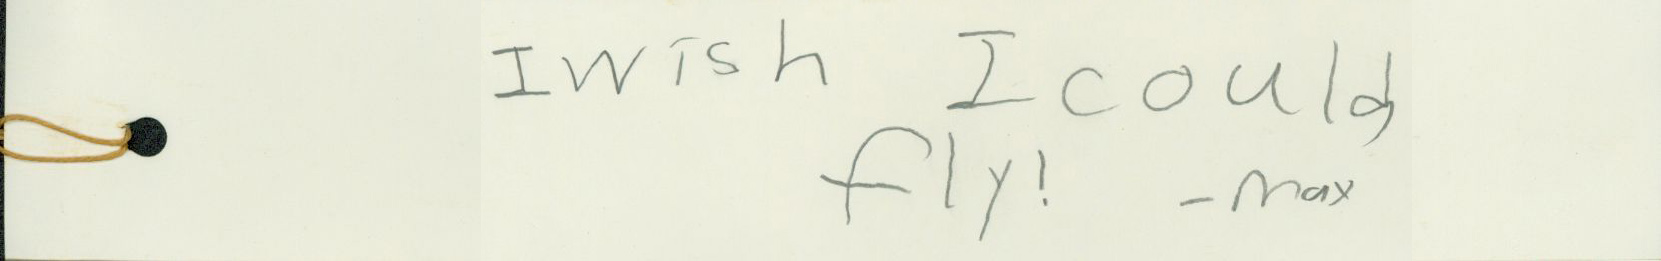 I wish I could
fly! - Max